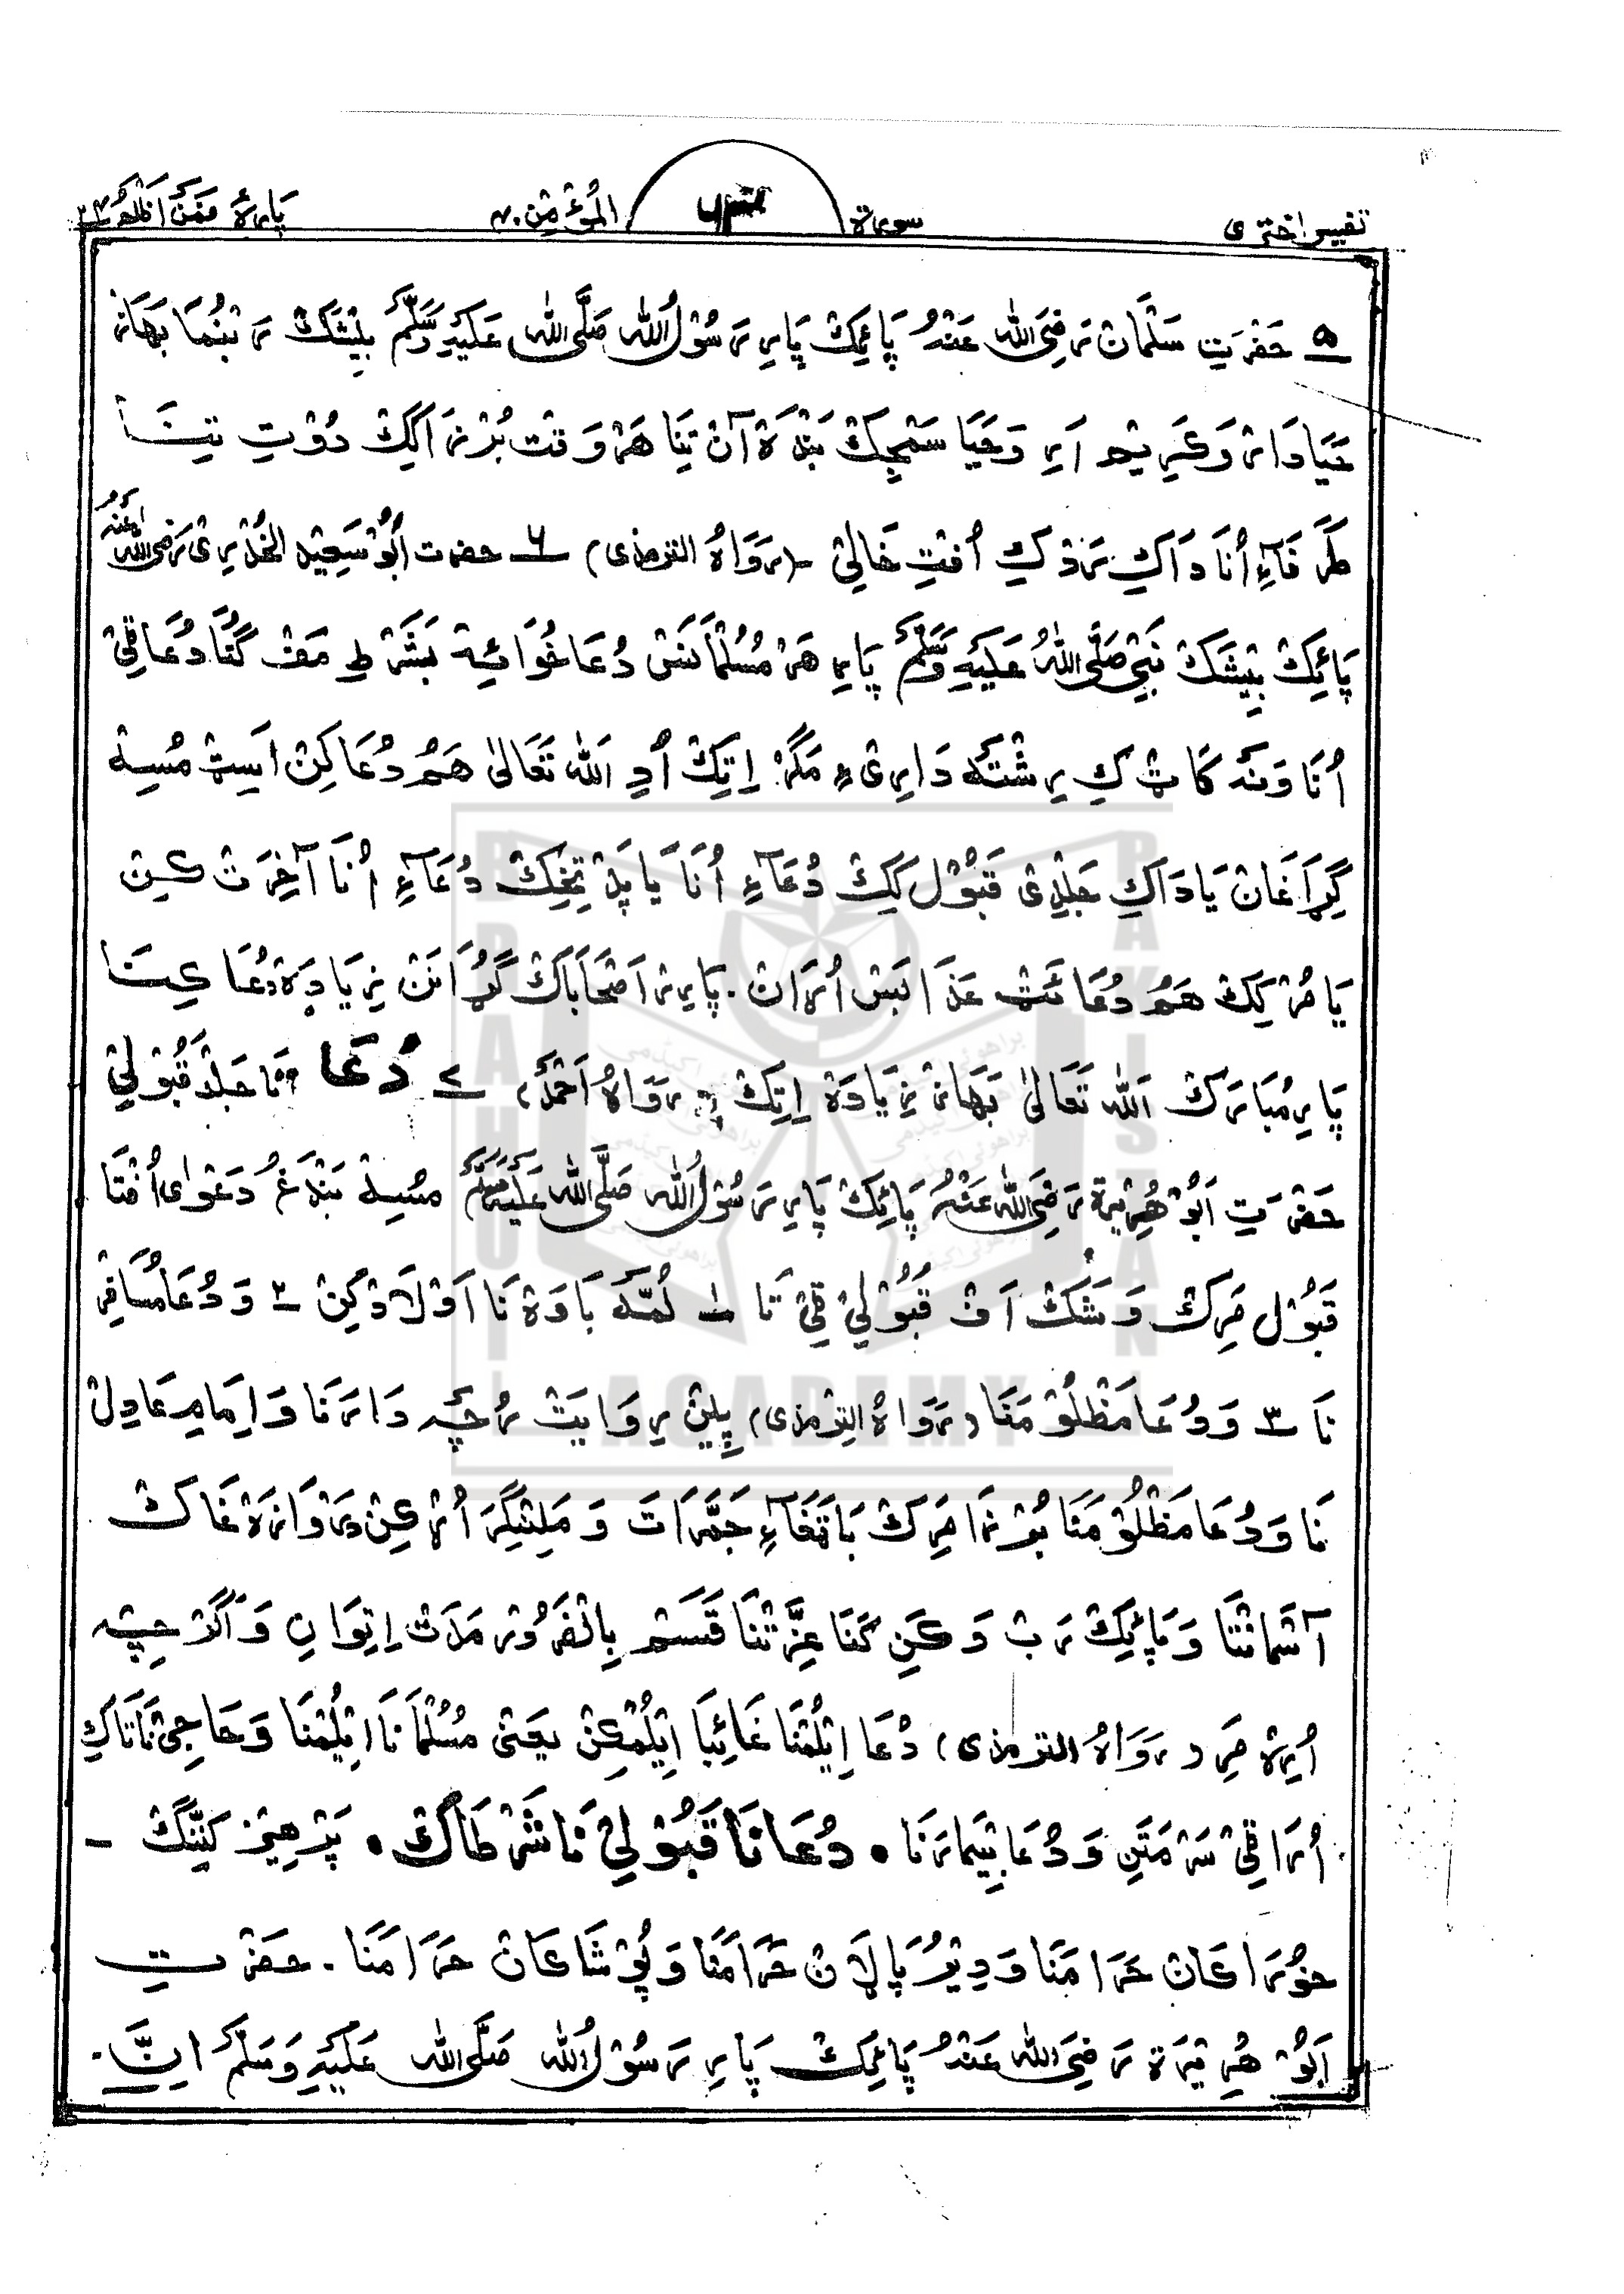 تفسیر اختری سورۃ المؤمن ۴۰ پارۂ فمن اظلم ۲۴
۵ حَضرَتِ سَلْمَانْ رَضِیَ اللہ عَنْہُ پَائِکْ پَارِ رَسُوْلُ اللہ صَلَّی اللہ عَلَیْہِ وَسَلَّمْ بیْشَکْ رَبْنُمَا بھَازْ
حَیَادَارْ وَکَرِیْم اَرِ وَحَیَا سَمْجِکْ بَنْدَہ آنْ تِنَا ھَرْوَقت بُرْزَا کِکْ دُوْتِ تِنَــا
طَرَفَآءِ اُنَا دَاکِ رَدْ کِ اُفْتِ خَالِیْ (رَوَاہُ الترمذی) ۶ حضرت اَبُوْسَعِیْد الخُدْرِیْ رَضی اللہ عنہُ
پَائِکْ بیْشَکْ نَبِیْ صَلَّی اللہُ عَلَیْہِ وَسَلَّمْ پَارِ ھَرْ مُسُلْمَانَسْ دُعَا خُوَائِہ بَشَرْطِ مَفْ گُنَا دُعَا ٹیْ
اُنَا وَنَہ کَاٹ کِ رِشْتَہ دَارِیْ ءِ مَگَرْ اِتِکْ اُدِ اَللہ تَعَالیٰ ھَمْ دُعَا کِنْ اَسِٹ مُسِہ
گِڑَاغَانْ یَادَاکِ جَلْدِی قَبُوْل کِکْ دُعَآءِ اُنَا یَا پَدْ تِخِکْ دُعَآءِ اُنَا آخِرَتْ کِن
یَا مُرْ کِکْ ھَمْ دُعَائَٹ عَذَابَسْ اُڑَانْ. پَارِرْ اَصْحَابَاکْ گُڑَانَنْ زِیَادَہ دُعَا کِنَــا
پَارِ مُبَارَکْ اَللہ تَعَالیٰ بھَازْ زِیَادَہ اِتِکْ (رَوَاہُ اَحْمَدْ) ۷ دُعَا نَا جَلدْ قَبُوْلِیْ
حَضْرَتِ اَبُوْھُرَیْرَۃ رَضِیَ اللہ عَنْہُ پَائِکْ پَارِ رَسُوْلُ اللہ صَلَّی اللہ عَلَیْہِ وَسَلَّمْ مُسِہ بَنْدَغْ دَعْوَایْ اُفْتَا
قَبُوْل مَرِکْ وَشَکْ اَفْ قَبُوْلِیْ ٹیْ تَا ۱ لُمَّہ بَاوَہ نَا اَوْلَادْ کِنْ ۲ وَدُعَا مُسَافِرْ
نَا ۳ وَدُعَا مَظْلُوْمَنَا (رَوَاہُ الترمذی) پِلِیْ رِوَایَتْ رُچَہ دَارَنَا وَاِمَامِ عَادِلْ
نَا وَدُعَا مَظْلُوْمَنَا بُرْزَا مَرِکْ بَاتَغَآءِ جَمَّرَاتَ وَمَلِنْگِرَ اُڑْکِنْ دَرْوَازَہ غَاکْ
آسْمَانْنَا وَپَائِکْ رَبْ وَکَنِ کَنَا عِزَّتْنَا قَسَمْ بِالْضَرُوْرْ مَدَتْ اِتِوَانِ وَاَگَرْ چِہ
اُرَہ مَرِ (رَوَاہُ الترمذی) دُعَا اِیْلُمْنَا غَائِبَا اِیْلُمْکِنْ یعنی مُسُلْمَانَا اِیْلُمْنَا وَحَاجِیْ نَاتَاکِ
اُرَاٹیْ سَرْ مَتَنِ وَدُعَا بِیْمَارَنَا ۰ دُعَا نَا قَبُوْلِیْ نَا شَرْطَاکْ ۰ پَرْھِیْز کَنِّنگْ ـ
خُوْرَاکَانْ حَرَامَنَا وَدِیْرُ پَالَانْ حَرَامَنَا وَپُوْشَاکَانْ حَرَامَنَا. حضرتِ
اَبُوْ ھُرَیْرَۃ رَضِیَ اللہ عَنْہُ پَائِکْ پَارِ رَسُوْلُ اللہ صَلَّی اللہ عَلَیْہِ وَسَلَّمْ اِنَّ
BRAHUI
ACADEMY
PAKISTAN